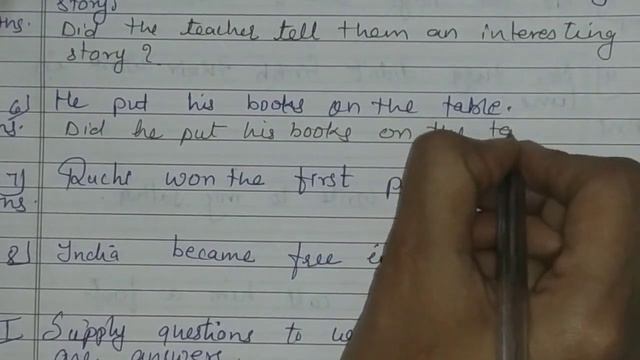 story.
Ans. Did the teacher tell them an interesting
story?
6) He put his books on the table.
Ans. Did he put his books on the ta
7) Ruchi won the first p
Ans.
8) India became free i
I Supply questions to
are answers.